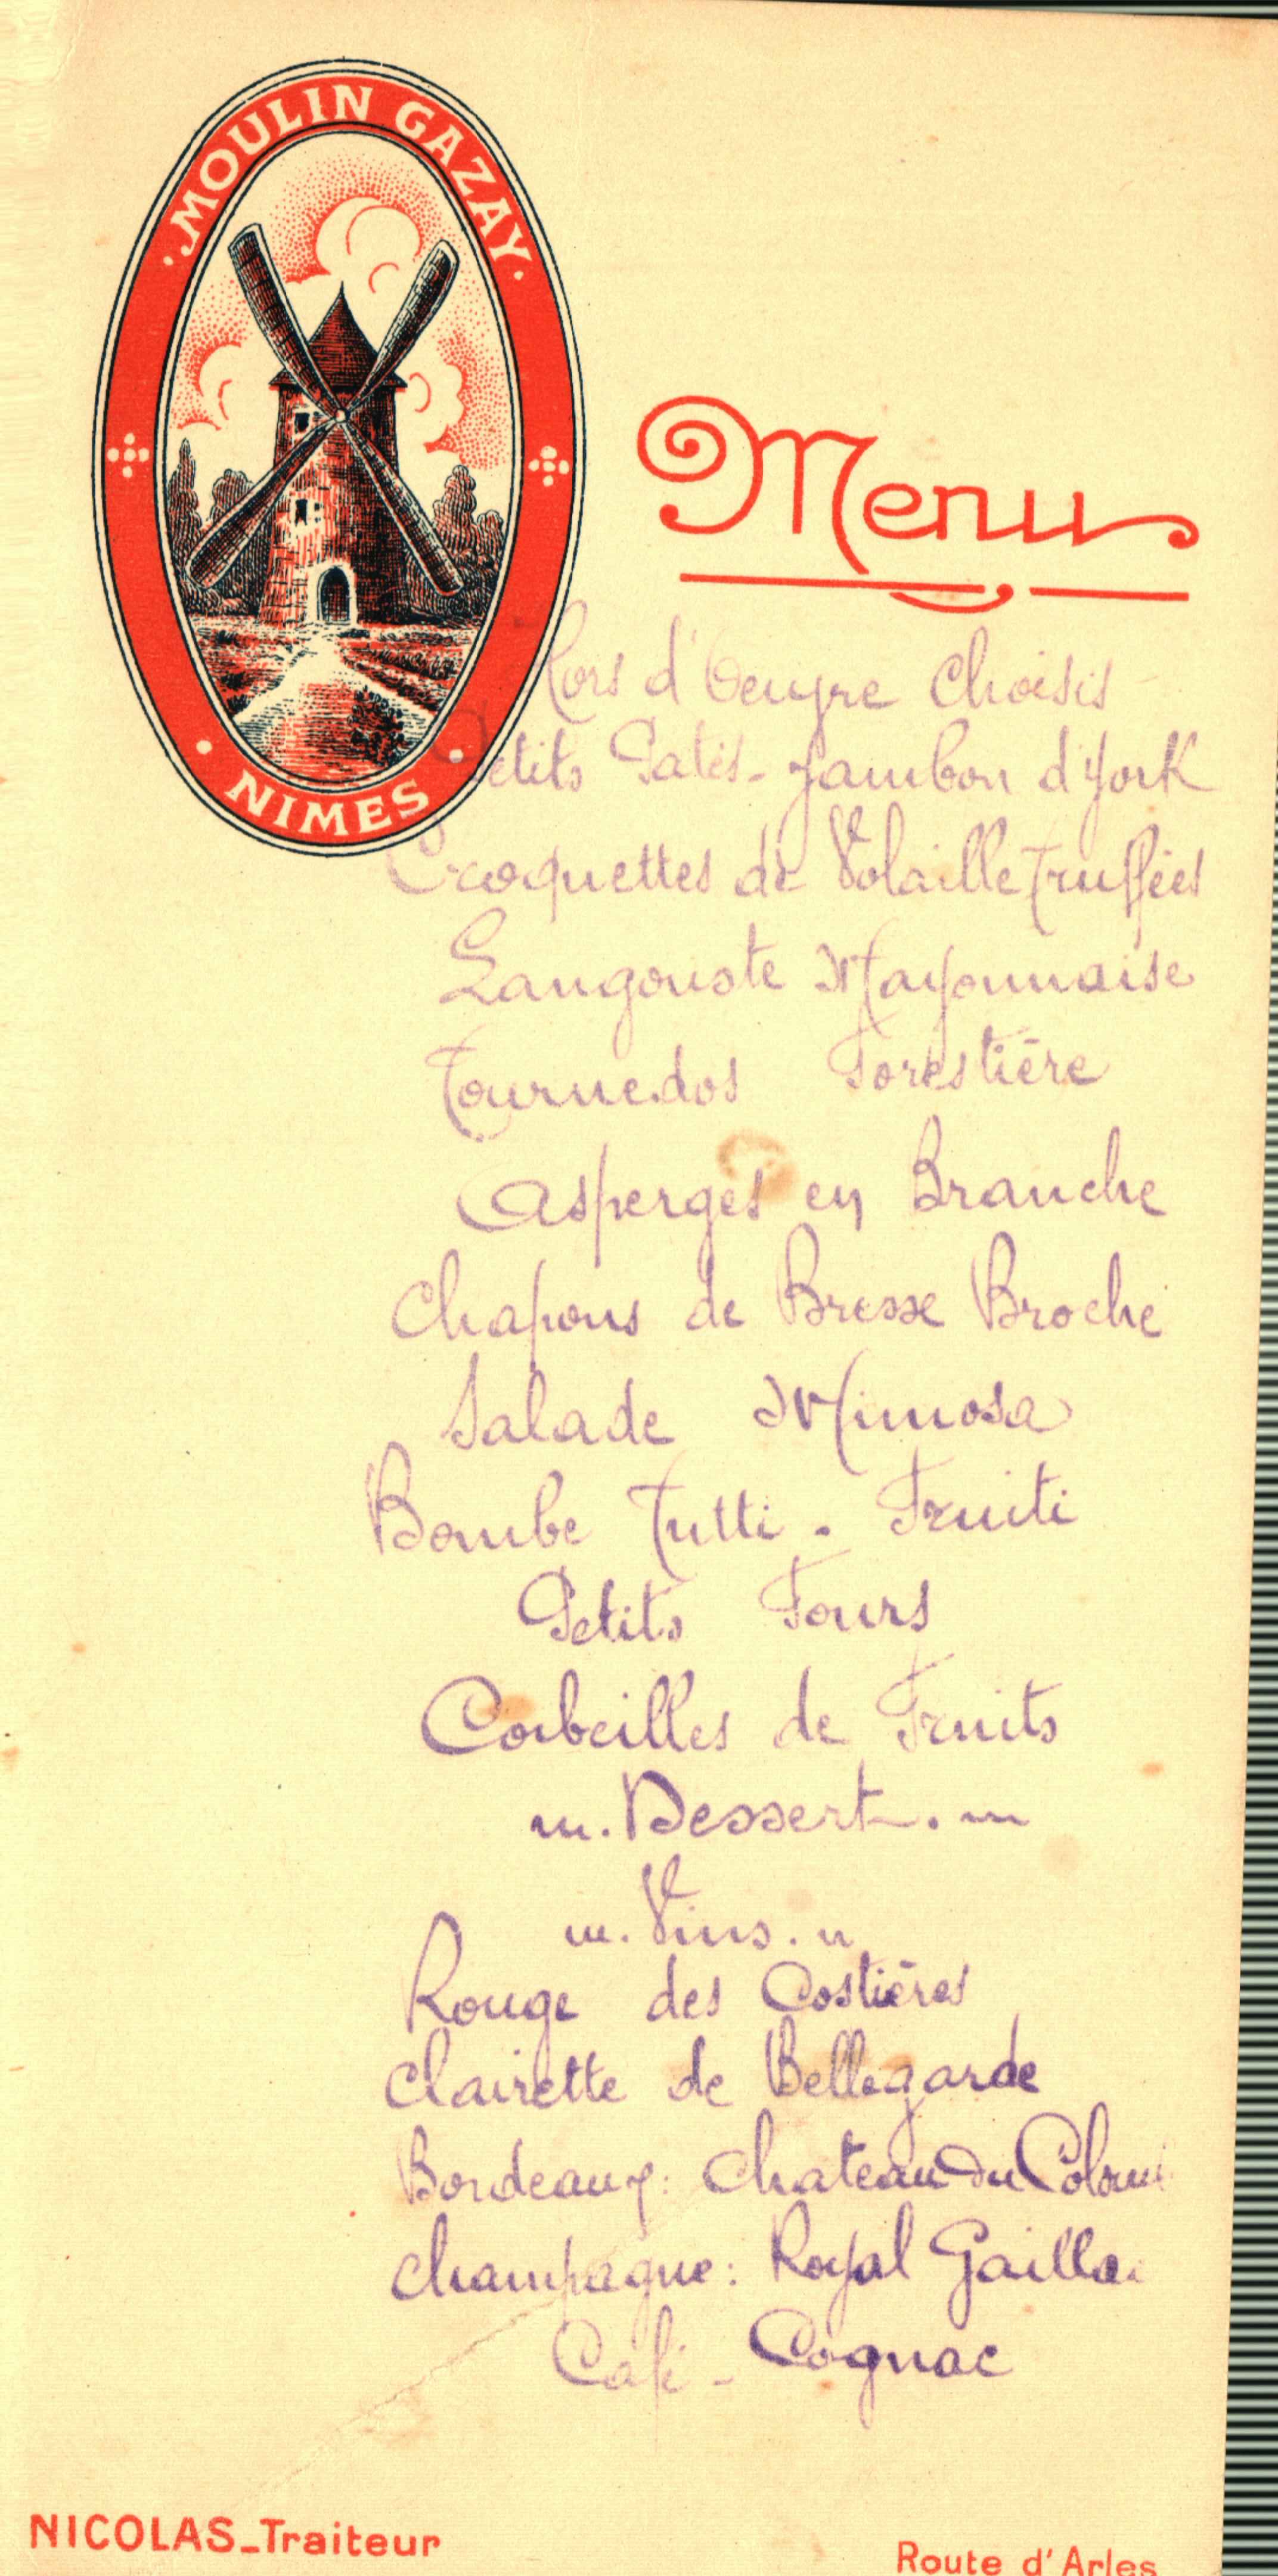 MOULIN GAZAY
NIMES
Menu
Hors d'Oeuvre Choisis
Petits Patés - Jambon d'York
Croquettes de Volaille Truffées
Langouste Mayonnaise
Tournedos Forestière
Asperges en Branche
Chapons de Bresse Broche
Salade Mimosa
Bombe Tutti - Fruiti
Petits Fours
Corbeilles de Fruits
Dessert
Vins
Rouge des Costières
Clairette de Bellegarde
Bordeaux : Chateau Du
Champagne : Royal
Café - Cognac
NICOLAS_Traiteur
Route d'Arles